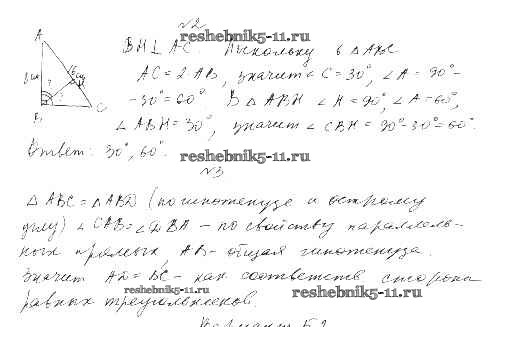 №2
reshebnik5-11.ru
A
BH ⊥ AC Поскольку в △ABC
AC = 2 AB, значит ∠C = 30°, ∠A = 90° -
- 30° = 60°. В △ABH ∠H = 90°, ∠A = 60°,
B C
∠ABH = 30°, значит ∠CBH = 90° - 30° = 60°.
Ответ: 30°, 60°.
reshebnik5-11.ru
№3
△ABC = △ABD (по гипотенузе и острому
углу) ∠CAB = ∠DBA - по свойству параллель-
ных прямых, AB - общая гипотенуза.
Значит AD = BC - как соответств стороны
reshebnik5-11.ru reshebnik5-11.ru
равных треугольников.